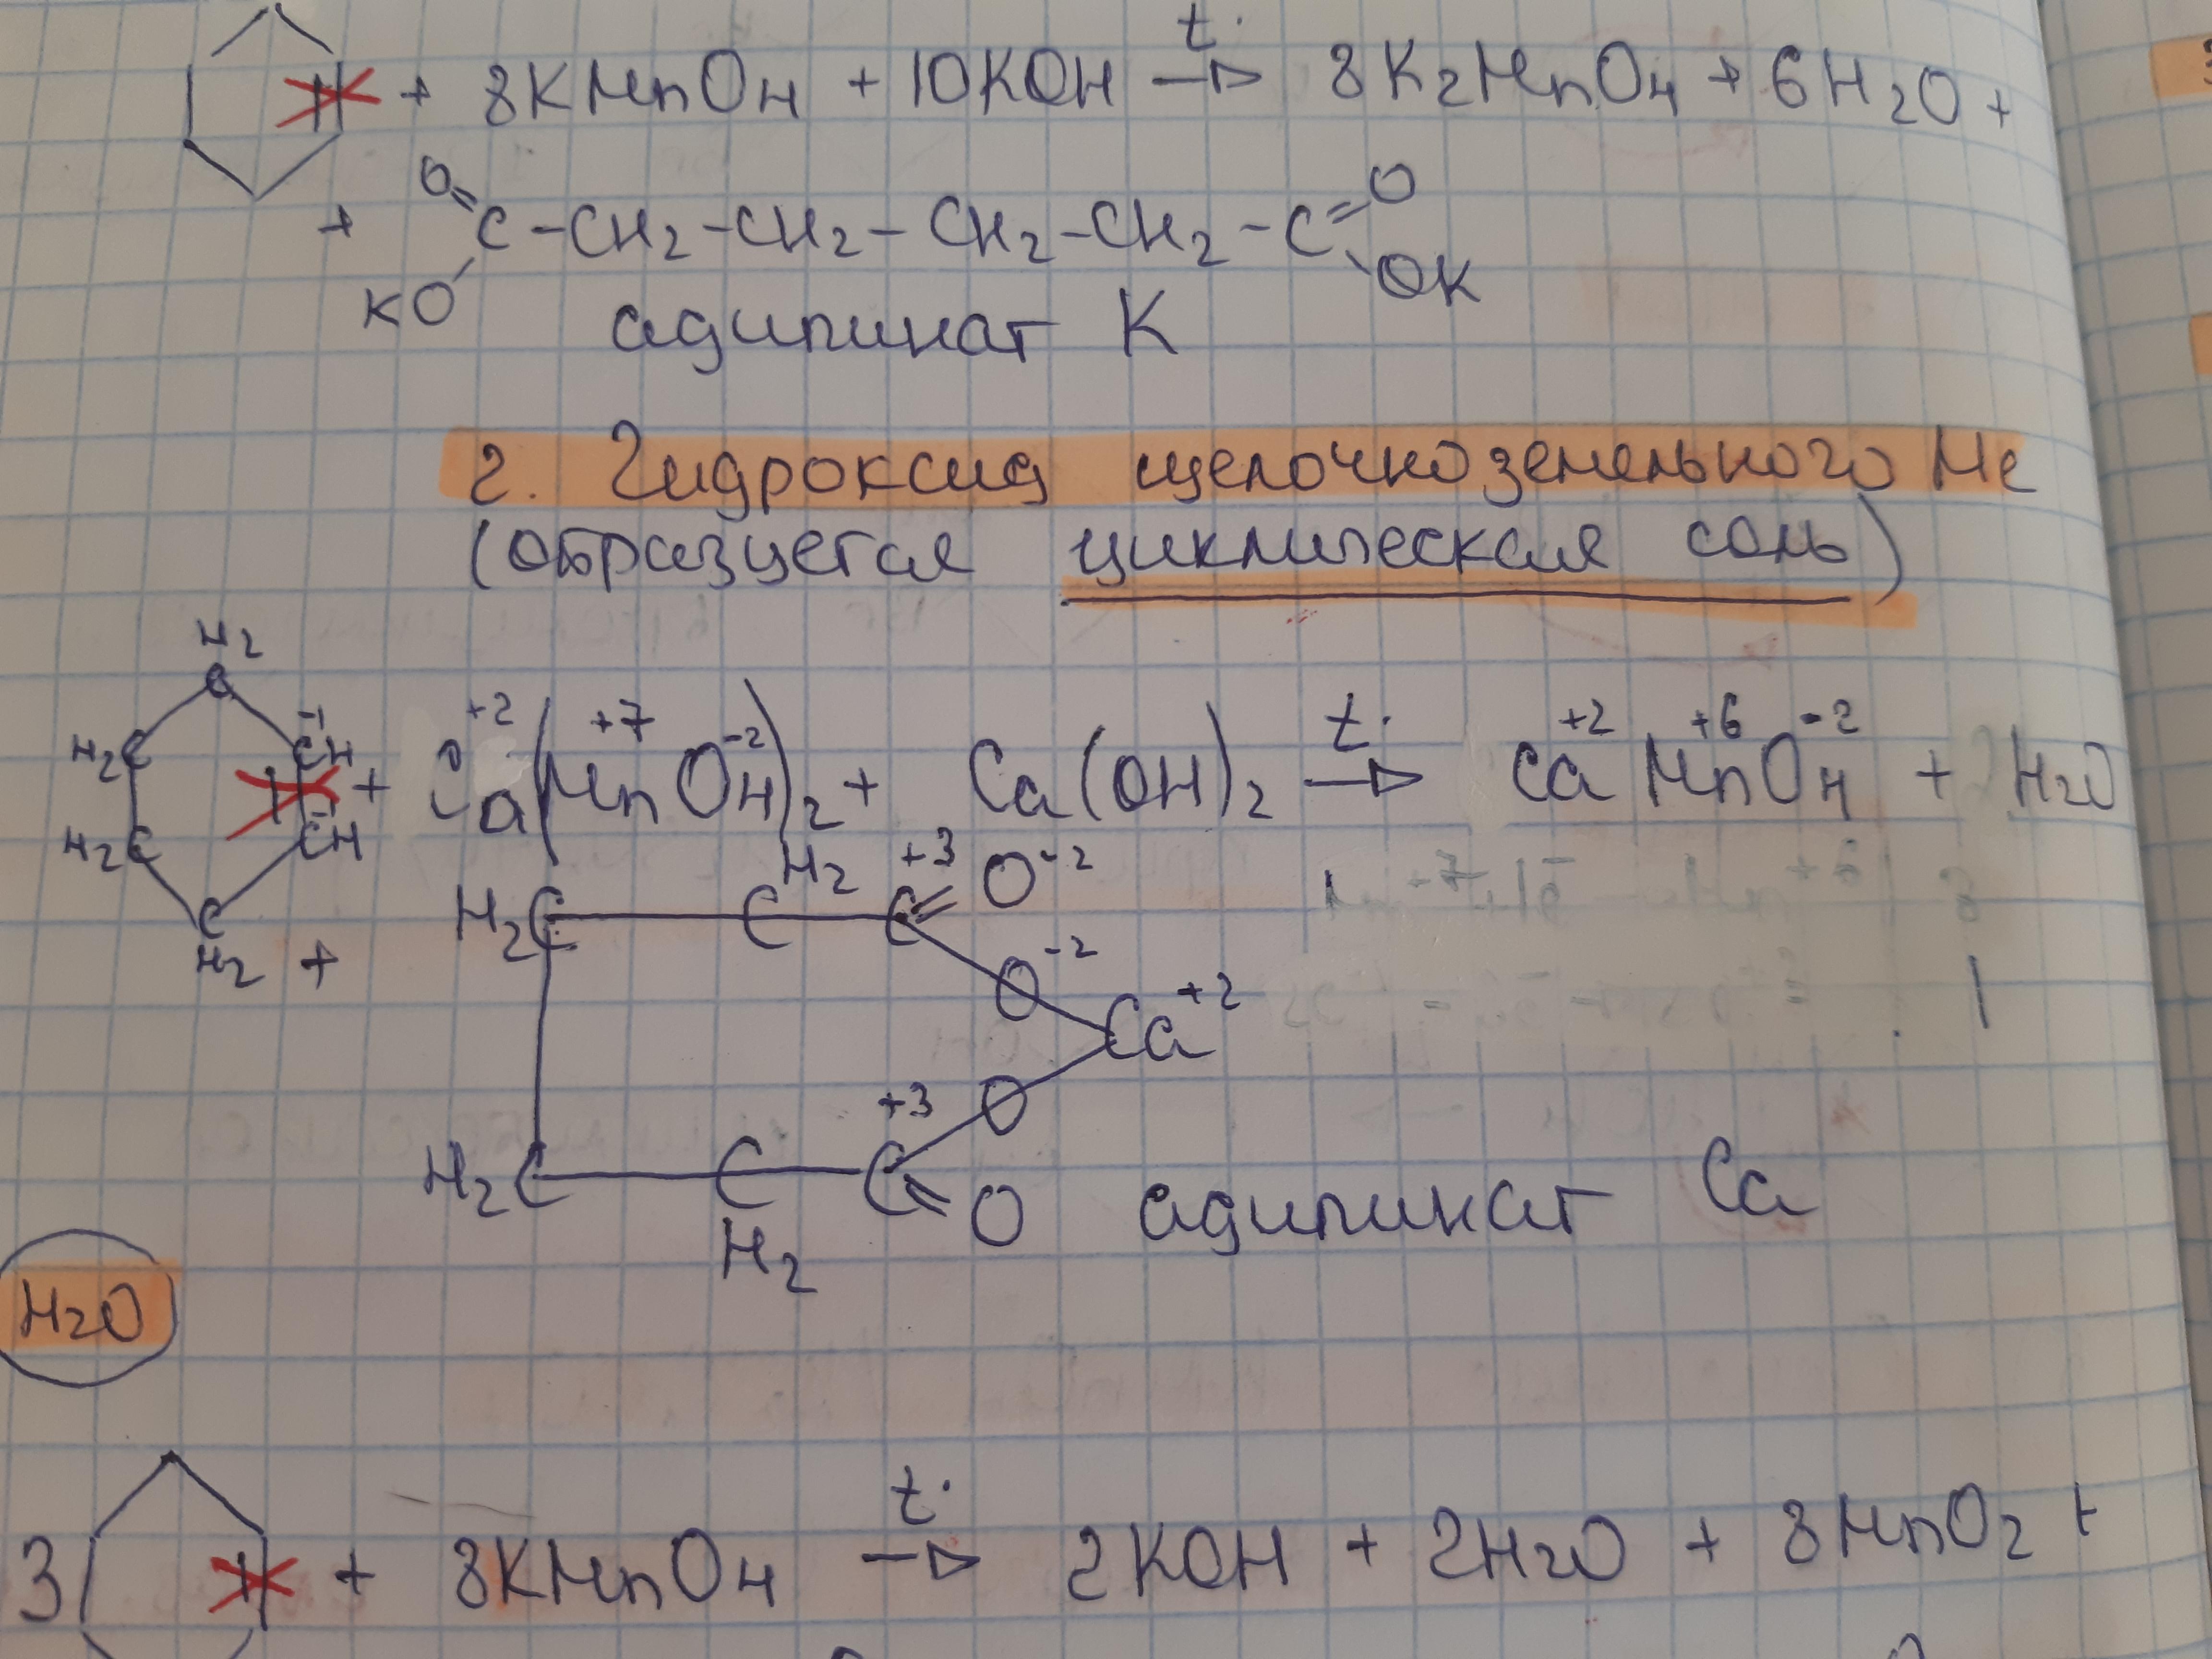 + 8KMnO4 + 10KOH t. → 8K2MnO4 + 6H2O +
+ O=C-CH2-CH2-CH2-CH2-C=O
KO OK
адипинат К
2. Гидроксид щелочноземельного Ме
(образуется циклическая соль)
H2
C
H2C -1 CH + +2 Ca(+7 Mn O4 -2)2 + Ca(OH)2 t. → +2 Ca +6 Mn O4 -2 + H2O
H2C -1 CH
C
H2 +
H2C C H2 +3 C = O-2
O-2
Ca+2
+3 O
H2C C C = O адипинат Ca
H2
H2O
3 + 8KMnO4 t. → 2KOH + 2H2O + 8MnO2 +